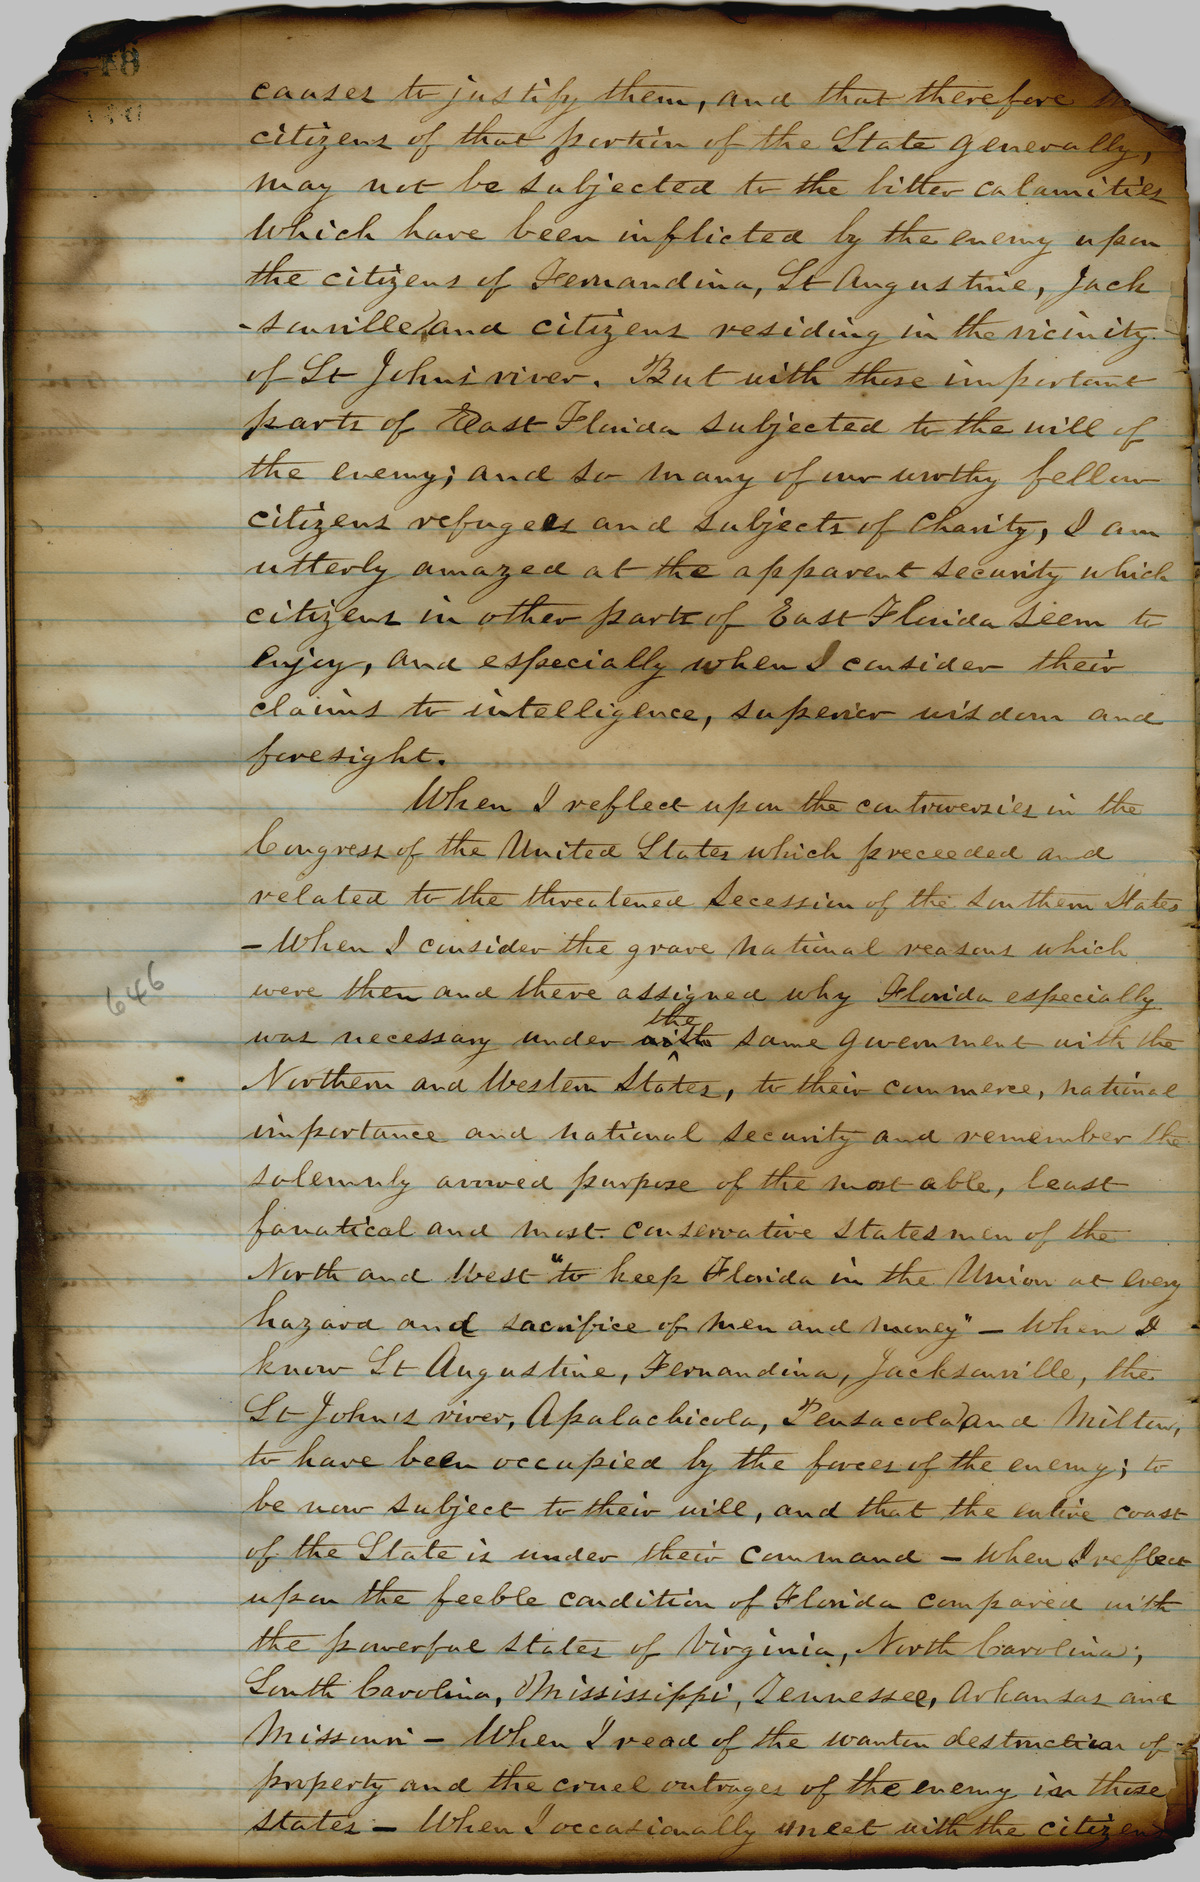 causes to justify them, and that therefore
citizens of that portion of the State generally,
may not be subjected to the bitter calamities
which have been inflicted by the enemy upon
the citizens of Fernandina, St Augustine, Jack
-sonville, and citizens residing in the vicinity
of St John's river. But with these important
parts of East Florida subjected to the will of
the enemy; and so many of our worthy fellow
citizens refugees and subjects of charity, I am
utterly amazed at the apparent security which
citizens in other parts of East Florida seem to
enjoy, and especially when I consider their
claims to intelligence, superior wisdom and
foresight.
When I reflect upon the controversies in the
Congress of the United States which preceeded and
related to the threatened Secession of the Southern States
- When I consider the grave national reasons which
were then and there assigned why Florida especially
646
the
was necessary under with same government with the
Northern and Western States, to their commerce, national
importance and national security and remember the
solemnly avowed purpose of the most able, least
fanatical and most conservative statesmen of the
North and West "to keep Florida in the Union at every
hazard and sacrifice of men and money" - When I
know St Augustine, Fernandina, Jacksonville, the
St John's river, Apalachicola, Pensacola, and Milton,
to have been occupied by the forces of the enemy; to
be now subject to their will, and that the entire coast
of the State is under their command - When I reflect
upon the feeble condition of Florida compared with
the powerful states of Virginia, North Carolina,
South Carolina, Mississippi, Tennessee, Arkansas and
Missouri - When I read of the wanton destruction of
property and the cruel outrages of the enemy in those
states - When I occasionally meet with the citizens